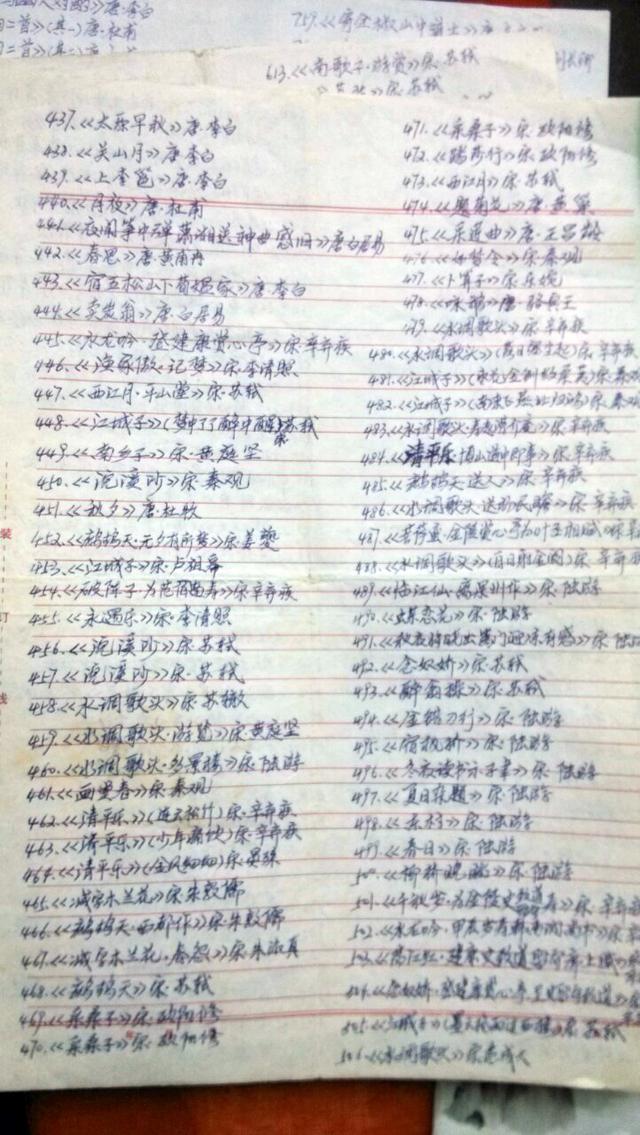 人对酌》唐·李白
二首》(其一)唐·杜甫
二首》(其二)唐
613.《南歌子·游赏》宋·苏轼
437.《太原早秋》唐·李白
438.《关山月》唐·李白
439.《上李邕》唐·李白
440.《月夜》唐·杜甫
441.《夜闻筝中弹潇湘送神曲感旧》唐·白居易
442.《春思》唐·皇甫冉
443.《宿五松山下荀媪家》唐·李白
444.《卖炭翁》唐·白居易
445.《水龙吟·登建康赏心亭》宋·辛弃疾
446.《渔家傲·记梦》宋·李清照
447.《西江月·平山堂》宋·苏轼
448.《江城子》(梦中了了醉中醒)宋·苏轼
449.《南乡子》宋·黄庭坚
450.《浣溪沙》宋·秦观
451.《秋夕》唐·杜牧
452.《鹧鸪天·元夕有所梦》宋·姜夔
453.《江城子》宋·卢祖皋
454.《破阵子·为范南伯寿》宋·辛弃疾
455.《永遇乐》宋·李清照
456.《浣溪沙》宋·苏轼
457.《浣溪沙》宋·苏轼
458.《水调歌头》宋·苏辙
459.《水调歌头·游览》宋·黄庭坚
460.《水调歌头·多景楼》宋·陆游
461.《画堂春》宋·秦观
462.《清平乐》(连云松竹)宋·辛弃疾
463.《清平乐》(少年痛饮)宋·辛弃疾
464.《清平乐》(金风细细)宋·晏殊
465.《减字木兰花》宋·朱敦儒
466.《鹧鸪天·西都作》宋·朱敦儒
467.《减字木兰花·春怨》宋·朱淑真
468.《鹧鸪天》宋·苏轼
469.《采桑子》宋·欧阳修
470.《采桑子》宋·欧阳修
471.《采桑子》宋·欧阳修
472.《踏莎行》宋·欧阳修
473.《西江月》宋·苏轼
474.《题菊花》唐·黄巢
475.《采莲曲》唐·王昌龄
476.《如梦令》宋·秦观
477.《卜算子》宋·乐婉
478.《咏鹅》唐·骆宾王
479.《水调歌头》宋·辛弃疾
480.《水调歌头》宋·辛弃疾
481.《江城子》宋·秦观
482.《江城子》(南来飞燕北归鸿)宋·秦观
483.《水调歌头》宋·辛弃疾
484.《清平乐·博山道中即事》宋·辛弃疾
485.《鹧鸪天·送人》宋·辛弃疾
486.《水调歌头》宋·辛弃疾
487.《菩萨蛮·金陵赏心亭为叶丞相赋》宋·辛
488.《水调歌头》宋·辛弃疾
489.《临江仙·离果州作》宋·陆游
490.《蝶恋花》宋·陆游
491.《秋夜将晓出篱门迎凉有感》宋·陆游
492.《念奴娇》宋·苏轼
493.《醉翁操》宋·苏轼
494.《金错刀行》宋·陆游
495.《宿枫桥》宋·陆游
496.《冬夜读书示子聿》宋·陆游
497.《夏日杂题》宋·陆游
498.《东村》宋·陆游
499.《春日》宋·陆游
500.《柳桥晚眺》宋·陆游
501.《千秋岁·为金陵史致道寿》宋·辛弃疾
502.《水龙吟·甲辰岁寿韩南涧尚书》宋·辛弃
503.《满江红·建康史致道留守席上赋》
504.《念奴娇·登建康赏心亭呈史留守致道》
505.《江城子》宋·苏轼
506.《水调歌头》宋
装
订
线